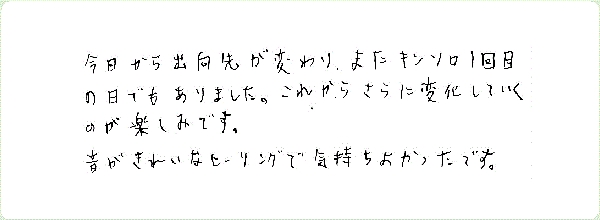 今日から出向先が変わり、またキンソロ1回目
の日でもありました。これからさらに変化していく
のが楽しみです。
音がきれいなヒーリングで気持ちよかったです。